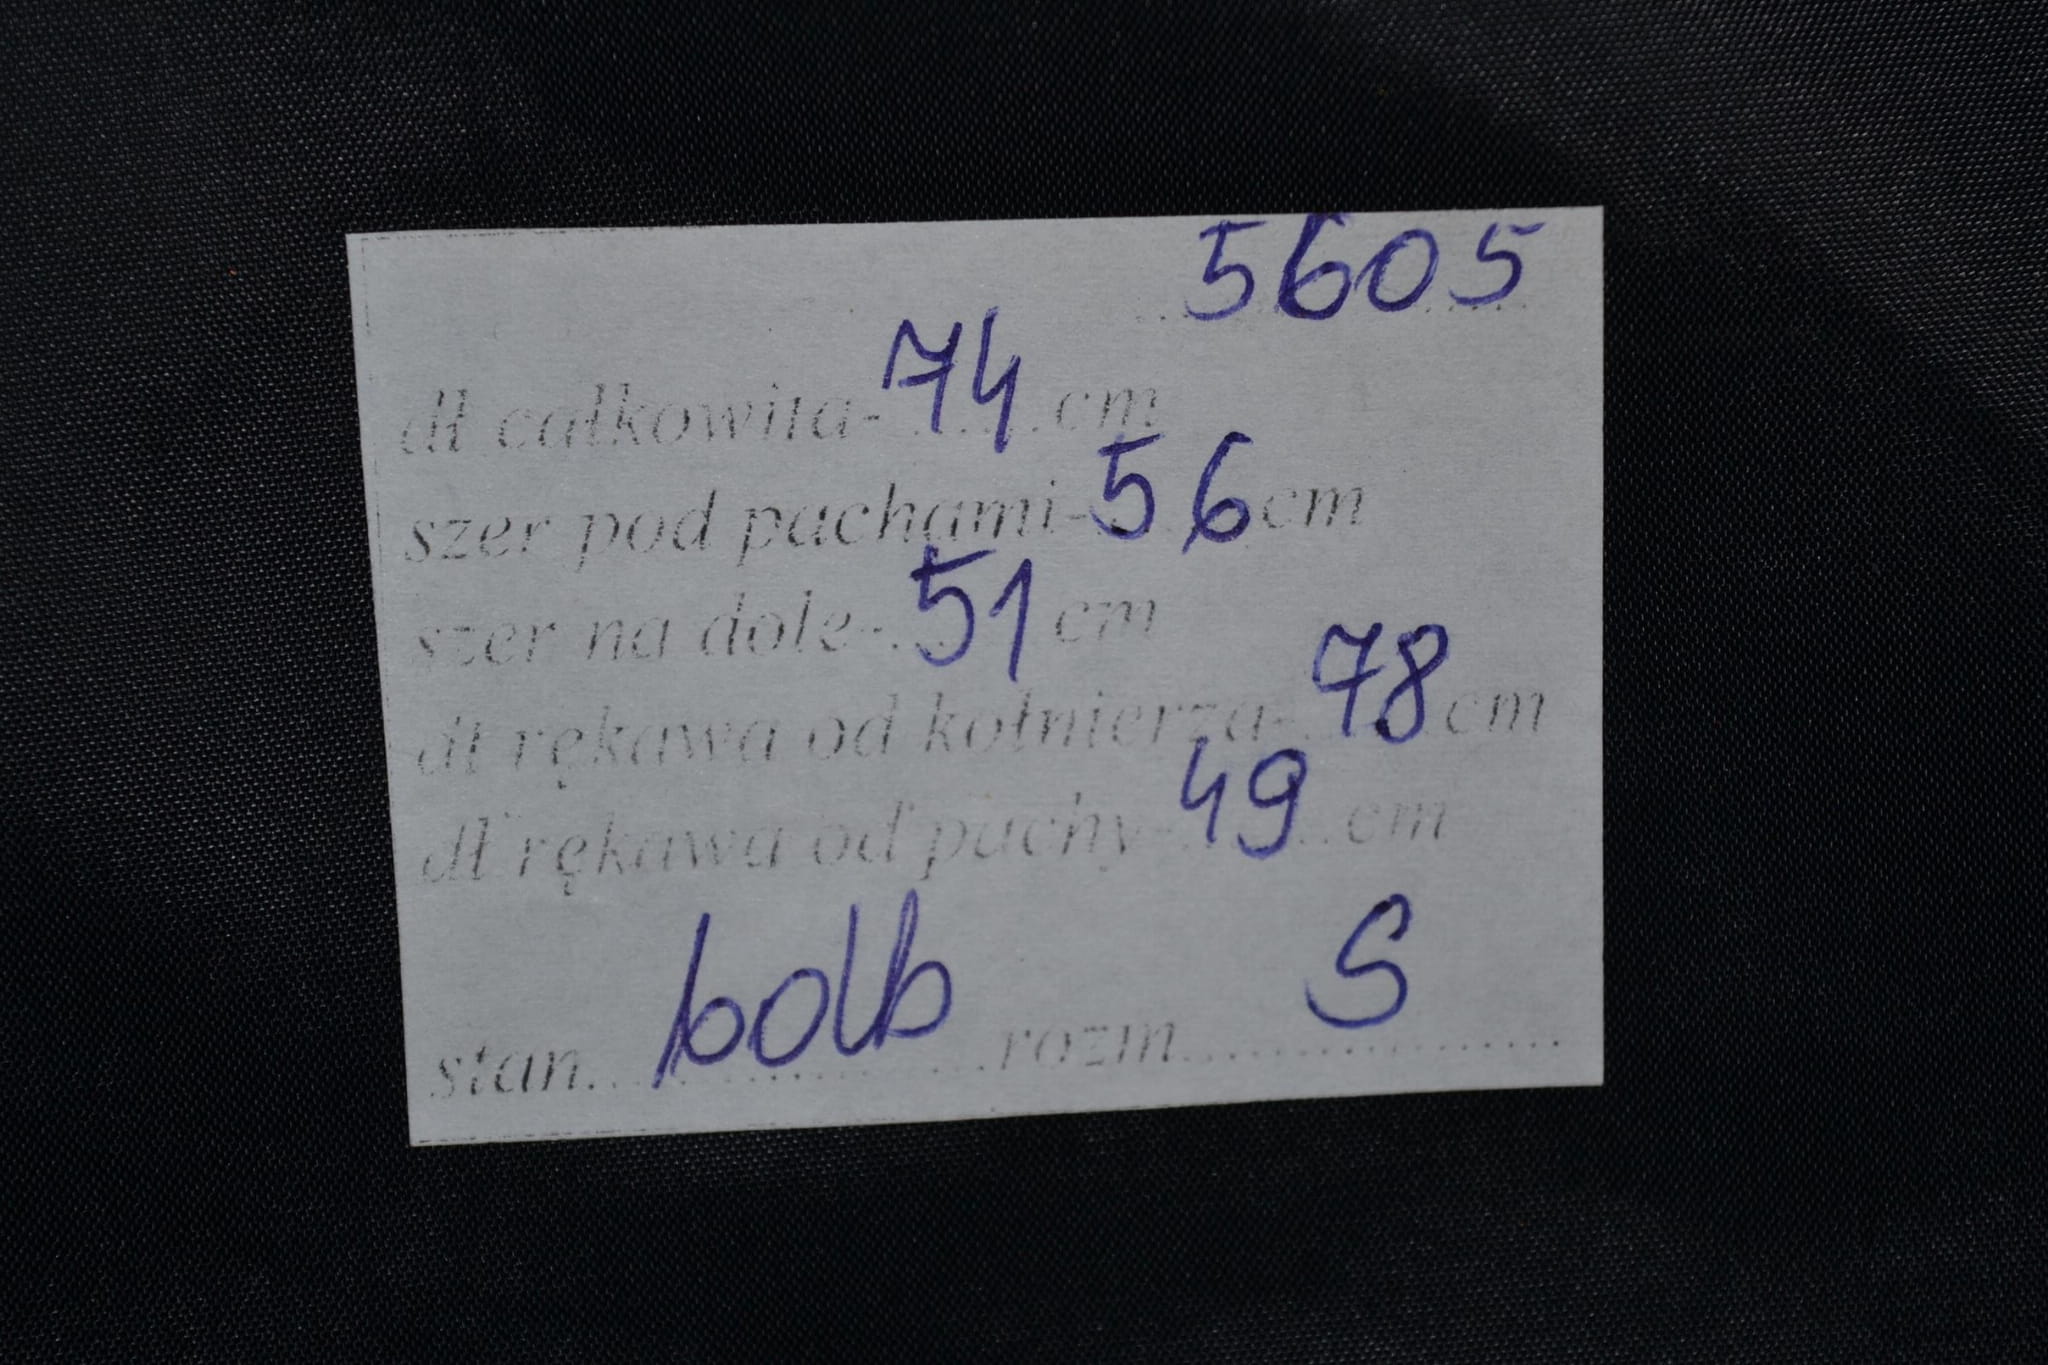 5605
dł całkowita- 74 cm
szer pod pachami- 56 cm
szer na dole- 51 cm
dł rękawa od kołnierza- 78 cm
dł rękawa od pachy- 49 cm
stan.....bdb.....rozm.....S.....